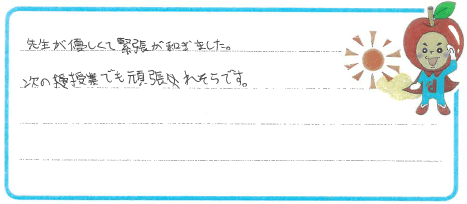 先生が優しくて緊張が和ぎました。
次の授業でも頑張れそうです。